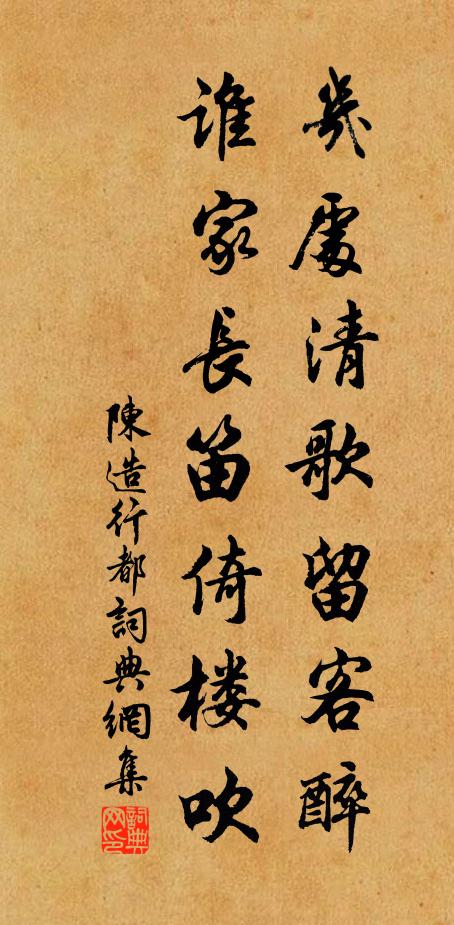 幾處清歌留客醉
誰家長笛倚楼吹
陳造行都詞典網集
詞典网印